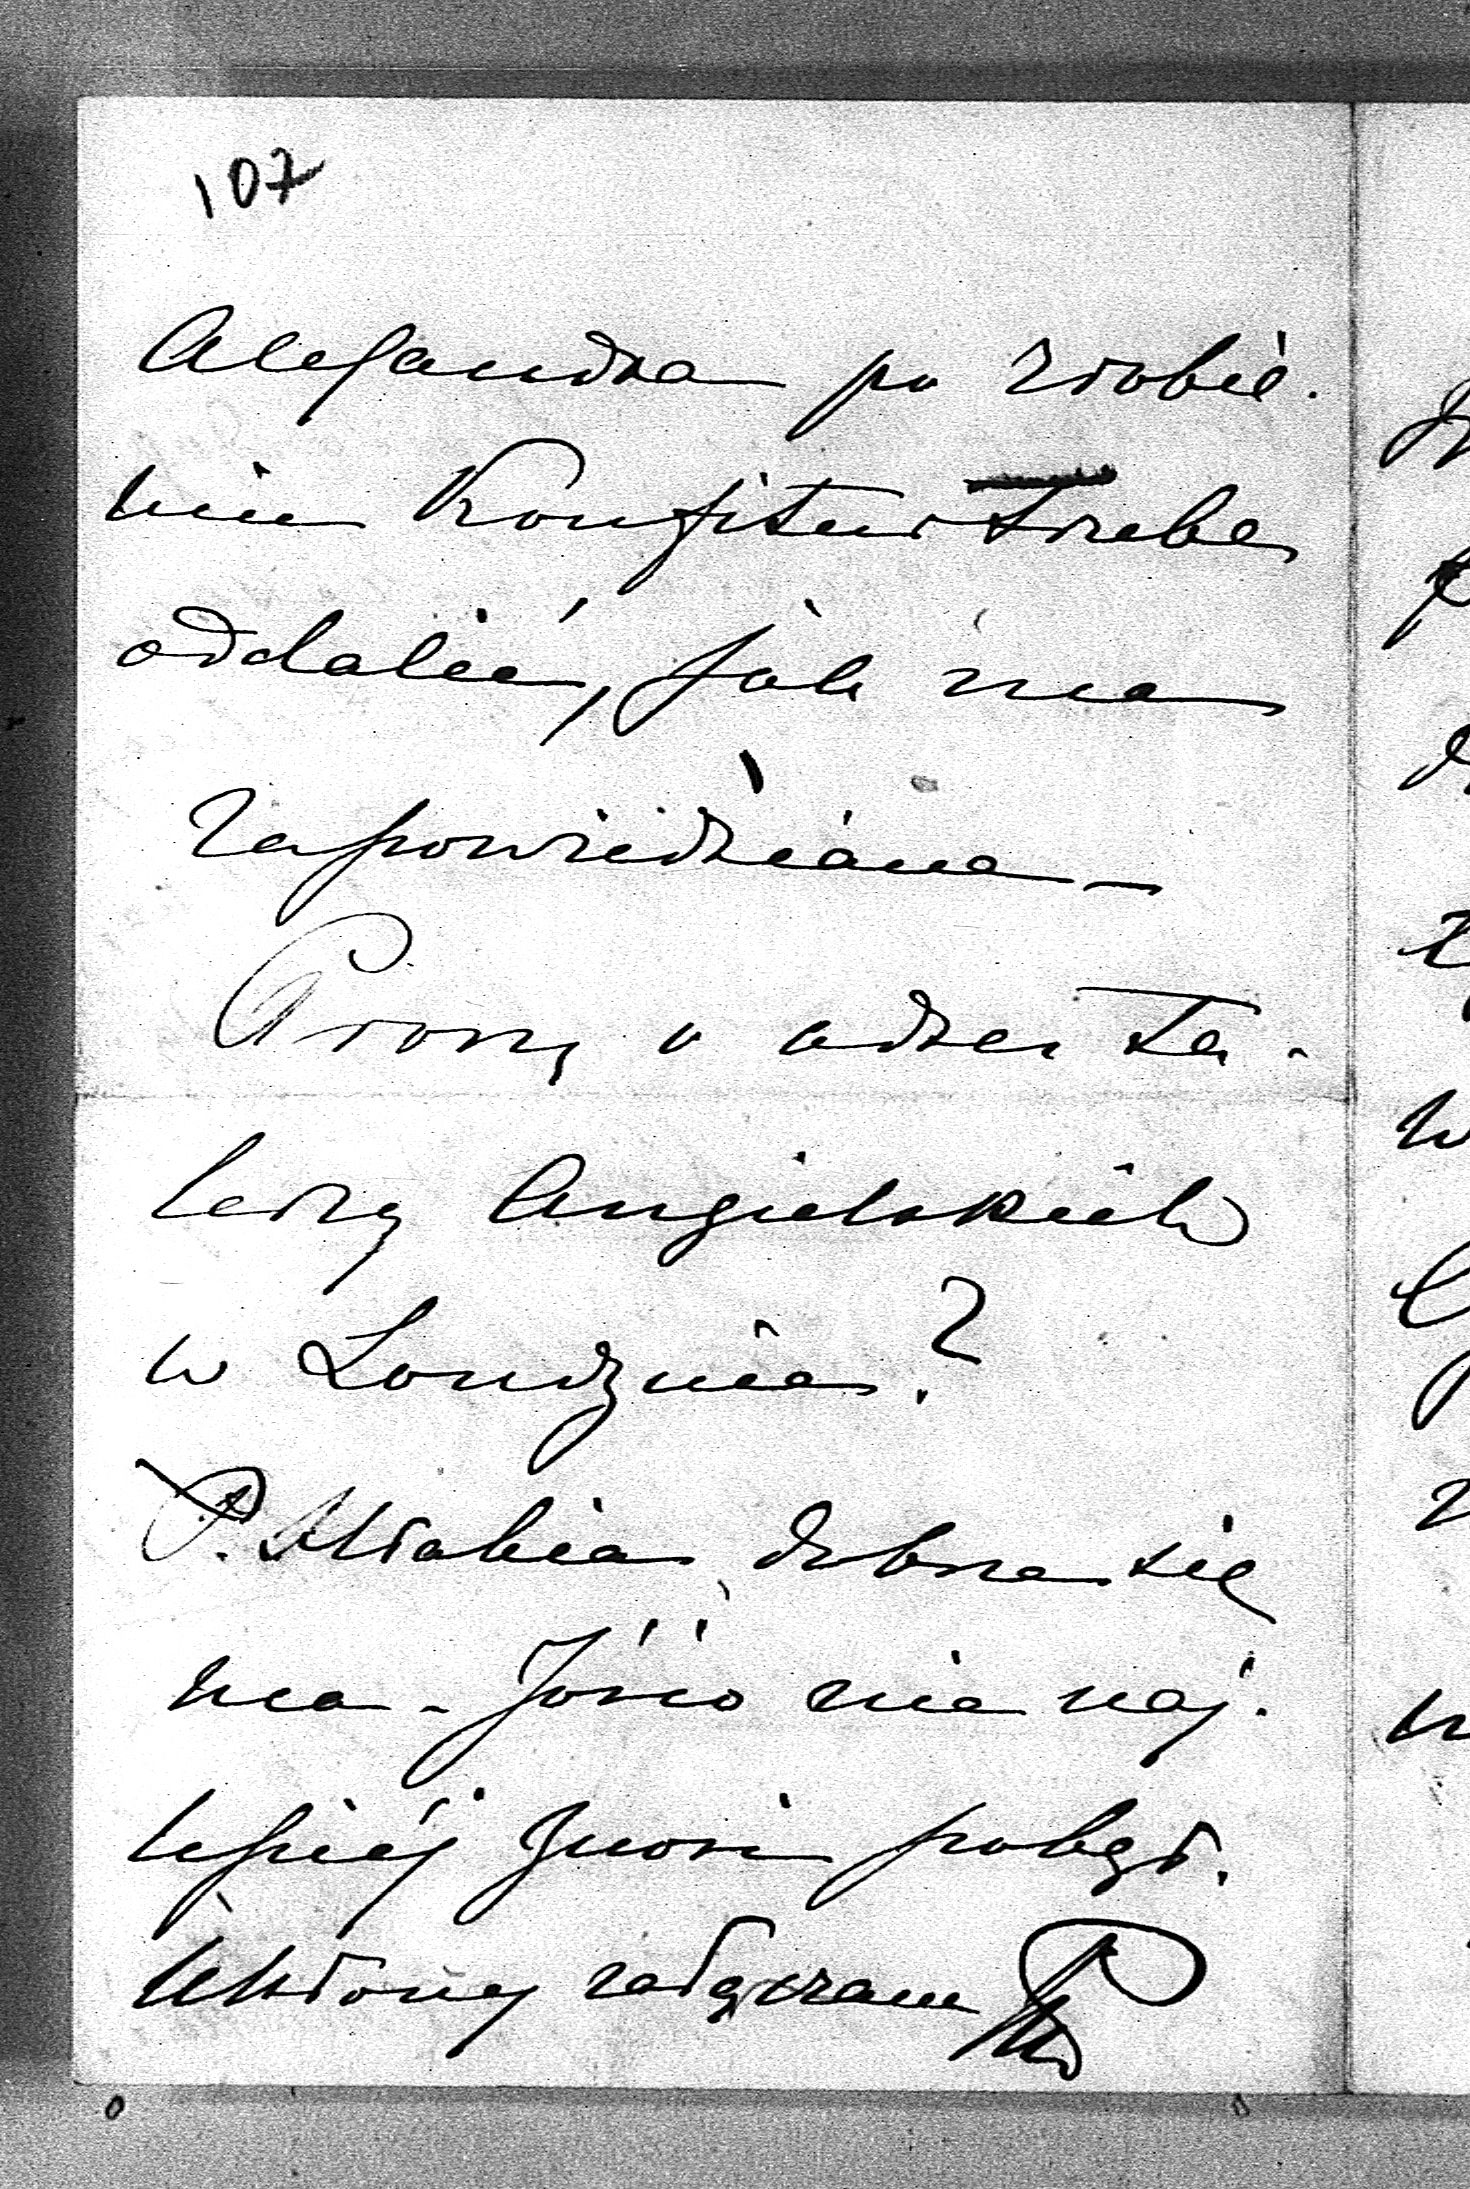 107
Alexandra po zrobie-
niu Konfitur trzeba
oddalić, jak ma
zapowiedziane —
Proszę o adres ta-
lerzy Angielskich
w Londynie?
P. Hrabia dobrze się
ma - Józio nie naj-
lepiej znosi pobyt.
Ukłony załączam